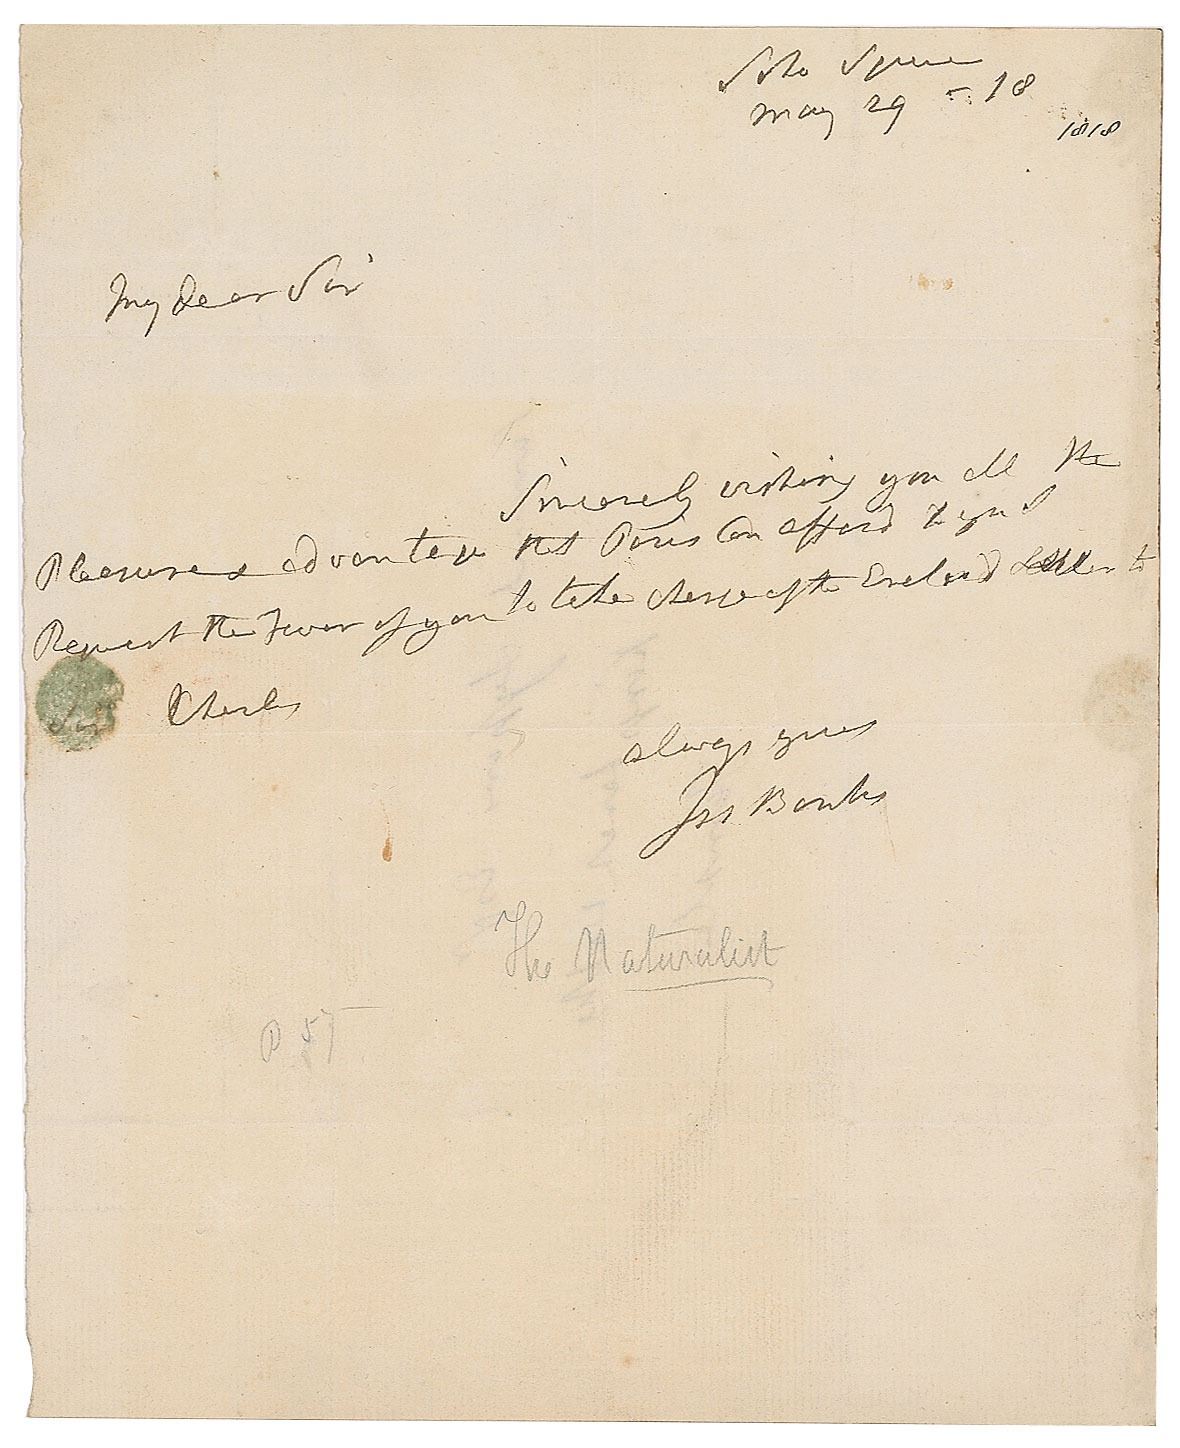 Soho Square
May 29 - 18
1818
My Dear Sir
Sincerely wishing you all the
Pleasure & advantage that Paris Can afford to you I
Request the Favor of you to take charge of the Enclosd Letter to
Sir Charles
always yours
Jos Banks
The Naturalist
P 57